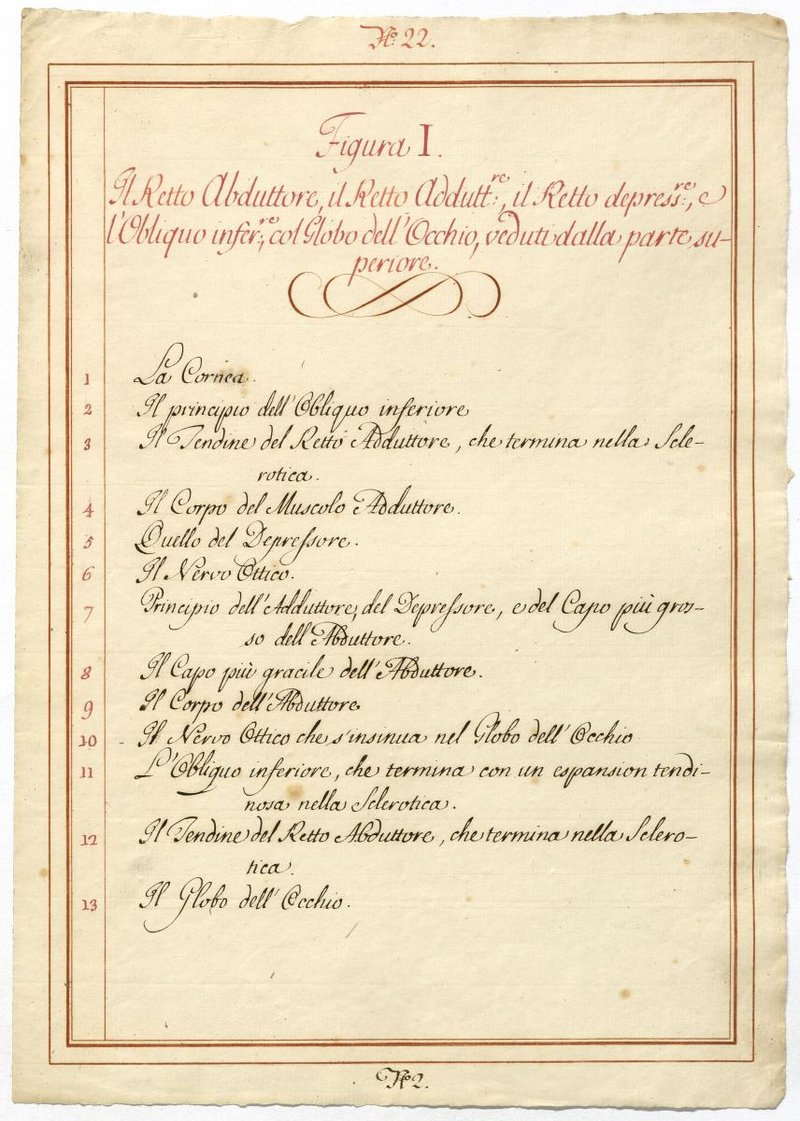 No. 22.
Figura I.
Il Retto Abduttore, il Retto Addutt.re, il Retto depress.re, e
l'Obliquo infer.re, col Globo dell'Occhio, veduti dalla parte su-
periore.
1 La Cornea.
2 Il principio dell'Obliquo inferiore
3 Il Tendine del Retto Adduttore, che termina nella Scle-
rotica.
4 Il Corpo del Muscolo Adduttore.
5 Quello del Depressore.
6 Il Nervo Ottico.
7 Principio dell'Adduttore, del Depressore, e del Capo più gros-
so dell'Abduttore.
8 Il Capo più gracile dell'Abduttore.
9 Il Corpo dell'Abduttore
10 Il Nervo Ottico che s'insinua nel Globo dell'Occhio
11 L'Obliquo inferiore, che termina con un espansion tendi-
nosa nella Sclerotica.
12 Il Tendine del Retto Abduttore, che termina nella Sclero-
tica.
13 Il Globo dell'Occhio.
No. 2.